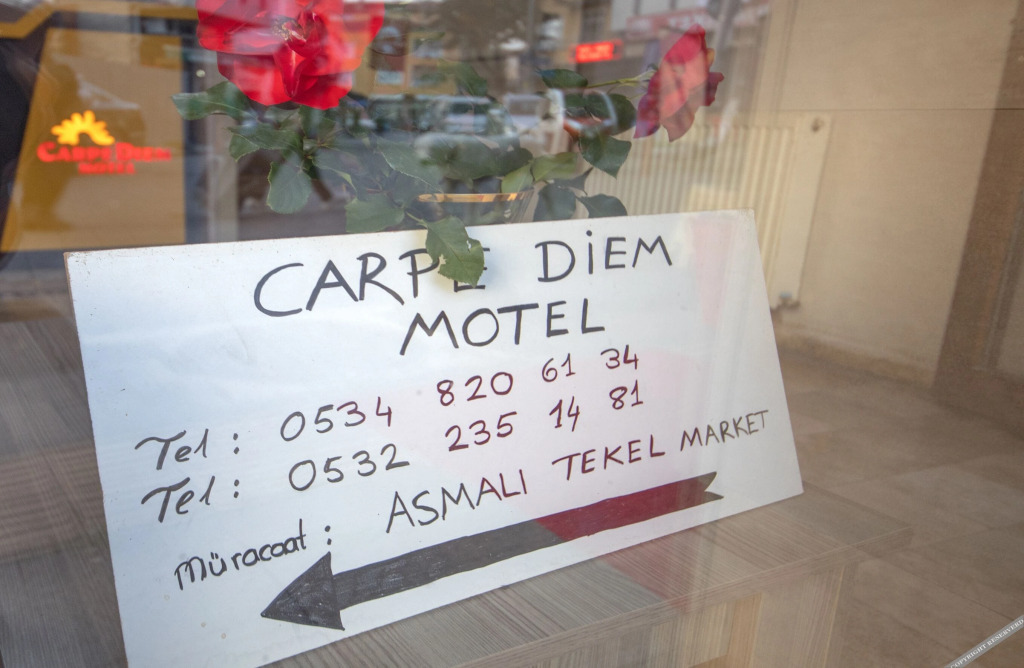 CARPE DIEM
MOTEL
CARPE DİEM
MOTEL
Tel : 0534 820 61 34
Tel : 0532 235 14 81
Müracaat : ASMALI TEKEL MARKET
COPYRIGHT RESERVED